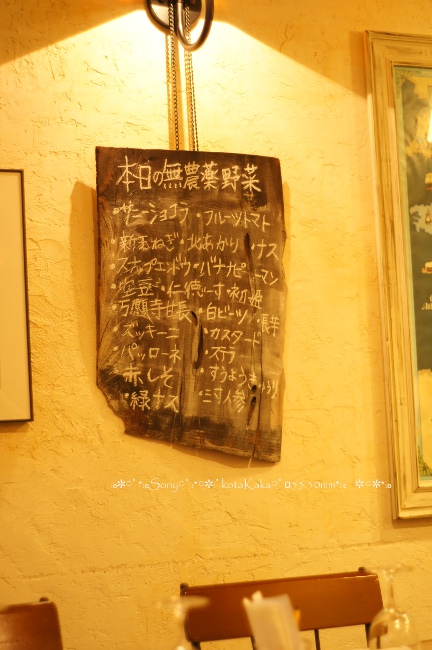 本日の無農薬野菜
・サニーショコラ・フルーツトマト
・新玉ねぎ・北あかり・ナス
・スナップエンドウ・バナナピーマン
・空豆・仁徳ﾋﾞｰﾅｽ
・万願寺甘長・白ビーツ・長芋
・ズッキーニ・カスタード
・パッローネ
・赤しそ
・緑ナス・三寸人参
Sony
kotaKaka